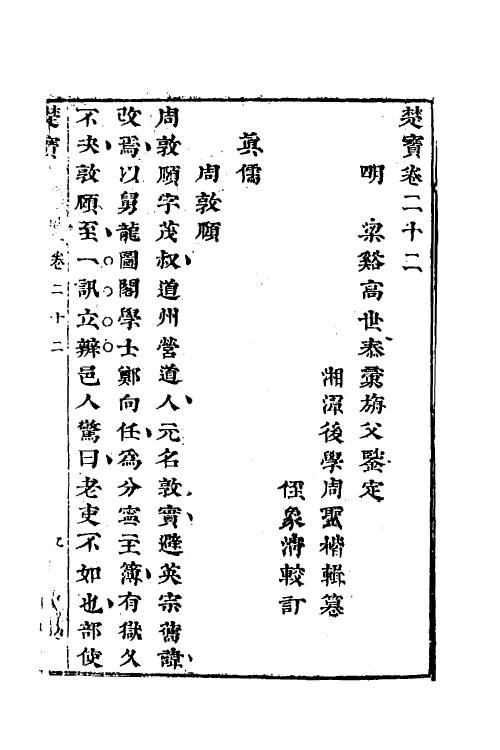 楚寶卷二十二
明　梁谿高世泰彚旃父鑒定
湘潭後學周聖楷輯纂
侄象濟較訂
眞儒
周敦頤
周敦頤字茂叔道州營道人元名敦實避英宗舊諱
改焉以舅龍圖閣學士鄭向任爲分寧主簿有獄久
不决敦頤至一訊立辨邑人驚曰老吏不如也部使
楚寶
卷二十二